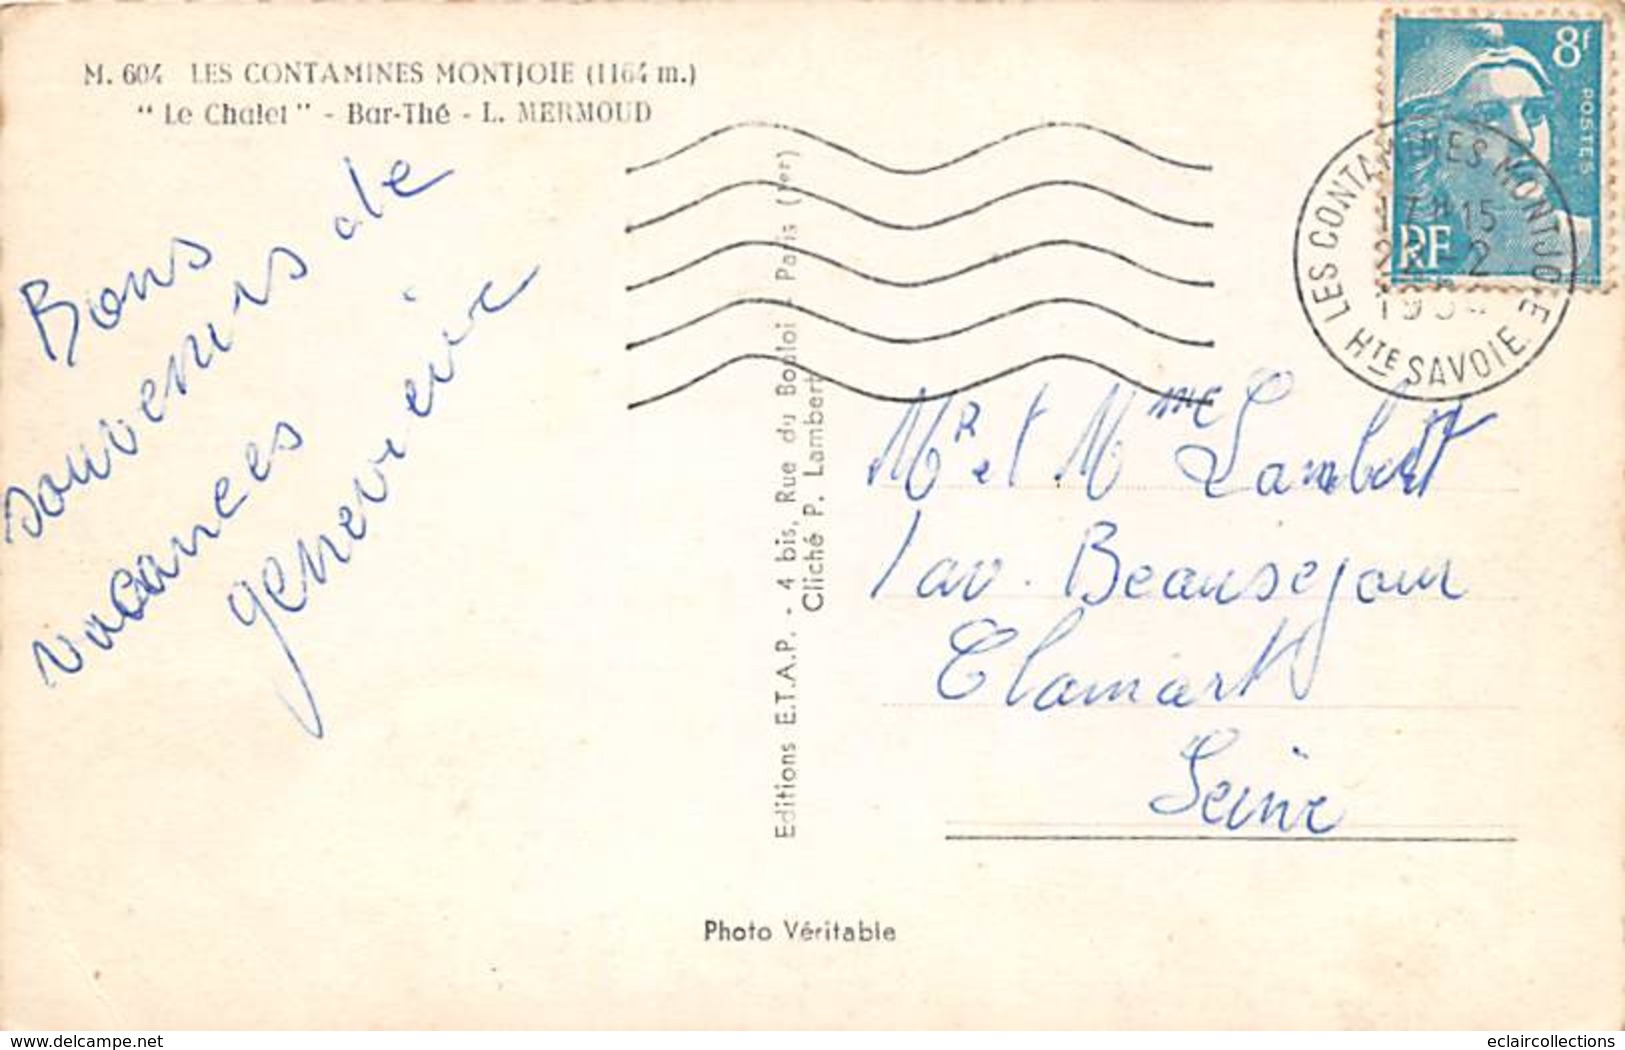 M. 604 LES CONTAMINES MONTJOIE (1164 m.)
"Le Chalet" - Bar-Thé - L. MERMOUD
Bons
souvenirs de
vacances
genevieve
Editions E.T.A.P. - 4 bis, Rue du Bouloi - Paris (1er)
Cliché P. Lambert
8f
POSTES
RF
LES CONTAMINES MONTJOIE
17H15
22-2
HTE SAVOIE
MR et Mme Lambert
1 av. Beausejour
Clamart
Seine
Photo Véritable
my.delcampe.net
eclaircollections